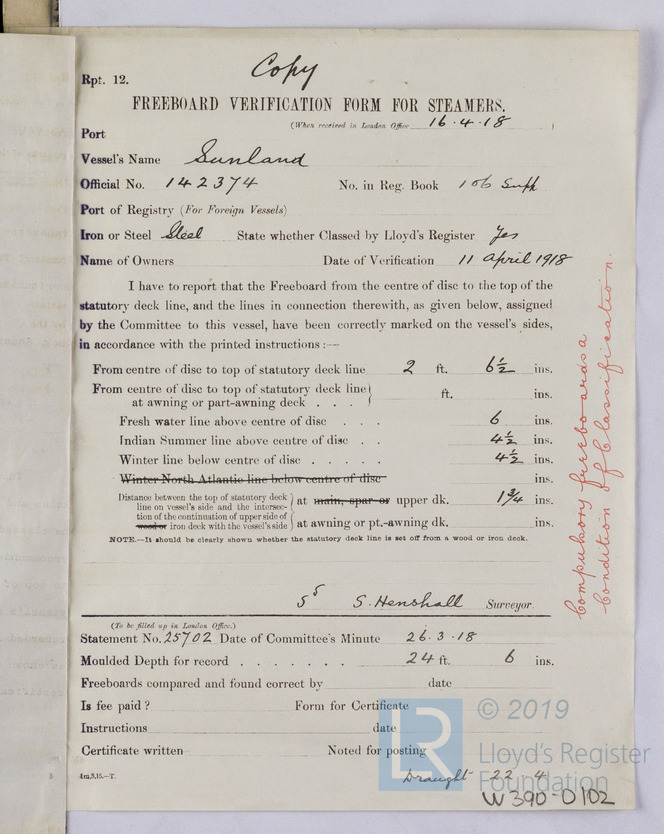 Copy
Rpt. 12.
FREEBOARD VERIFICATION FORM FOR STEAMERS.
(When received in London Office 16.4.18 )
Port
Vessel's Name Sunland
Official No. 142374 No. in Reg. Book 106 Supp
Port of Registry (For Foreign Vessels)
Iron or Steel Steel State whether Classed by Lloyd's Register Yes
Name of Owners Date of Verification 11 April 1918
I have to report that the Freeboard from the centre of disc to the top of the
statutory deck line, and the lines in connection therewith, as given below, assigned
by the Committee to this vessel, have been correctly marked on the vessel's sides,
in accordance with the printed instructions :—
From centre of disc to top of statutory deck line 2 ft. 6½ ins.
From centre of disc to top of statutory deck line
at awning or part-awning deck . . . ft. ins.
Fresh water line above centre of disc . . . 6 ins.
Indian Summer line above centre of disc . . 4½ ins.
Winter line below centre of disc . . . . . 4½ ins.
Winter North Atlantic line below centre of disc ins.
Distance between the top of statutory deck
line on vessel's side and the intersec-
tion of the continuation of upper side of
wood or iron deck with the vessel's side
at main, spar or upper dk. 1¾ ins.
at awning or pt.-awning dk. ins.
NOTE.—It should be clearly shown whether the statutory deck line is set off from a wood or iron deck.
S. Henshall Surveyor.
Compulsory freeboard as a
Condition of Classification.
(To be filled up in London Office.)
Statement No. 25702 Date of Committee's Minute 26.3.18
Moulded Depth for record . . . . . . . 24 ft. 6 ins.
Freeboards compared and found correct by date
Is fee paid ? Form for Certificate
Instructions date
Certificate written Noted for posting
4m,3,15.—T.
Draught 22 4
LR
© 2019
Lloyd's Register
Foundation
W390-0102